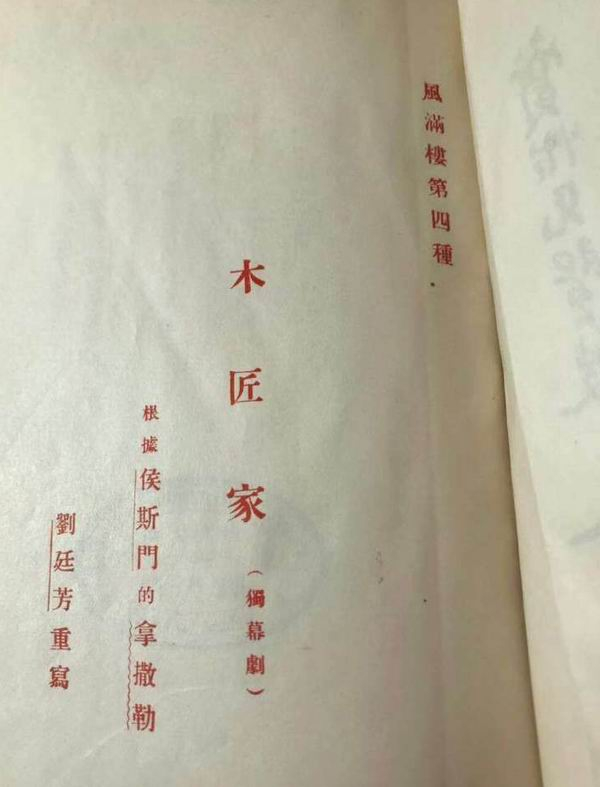 風滿樓第四種
木匠家（獨幕劇）
根據侯斯門的拿撒勒
劉廷芳重寫